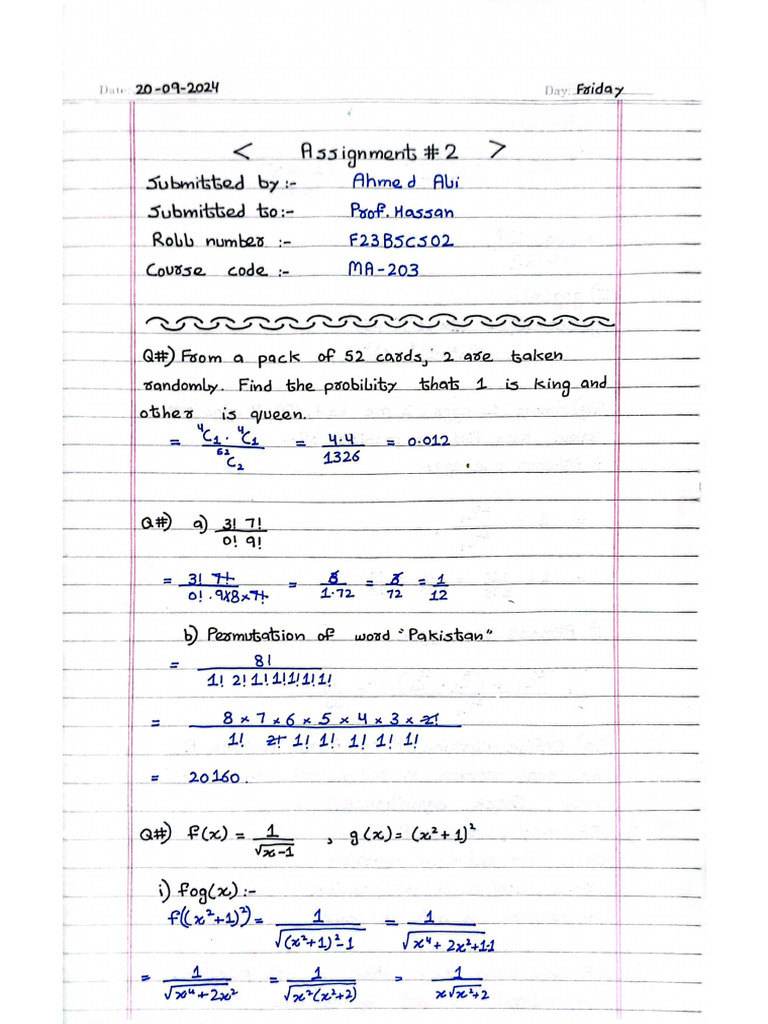 Date: 20-09-2024 Day: Friday
< Assignment #2 >
Submitted by:- Ahmed Ali
Submitted to:- Prof. Hassan
Roll number :- F23BSCS02
Course code :- MA-203
Q#) From a pack of 52 cards, 2 are taken
randomly. Find the probility thats 1 is king and
other is queen.
= ⁴C₁ · ⁴C₁ / ⁵²C₂ = 4·4 / 1326 = 0.012
Q#) a) 3! 7! / 0! 9!
= 3! 7! / 0! · 9×8×7! = 6 / 1·72 = 6 / 72 = 1 / 12
b) Permutation of word "Pakistan"
= 8! / 1! 2! 1! 1! 1! 1! 1!
= 8 × 7 × 6 × 5 × 4 × 3 × 2! / 1! 2! 1! 1! 1! 1! 1!
= 20160.
Q#) f(x) = 1 / √x-1 , g(x) = (x²+1)²
i) fog(x) :-
f((x²+1)²) = 1 / √(x²+1)²-1 = 1 / √x⁴+2x²+1-1
= 1 / √x⁴+2x² = 1 / √x²(x²+2) = 1 / x√x²+2